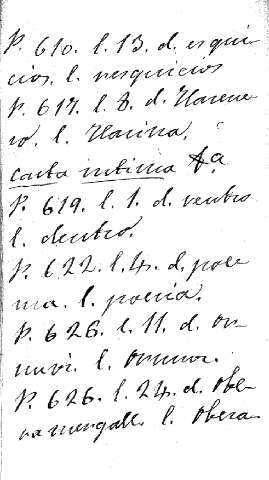 P. 610. l. 13. d. esqui-
cios, l. resquicios
P. 617. l. 8. d. Harene-
ro. l. Harina.
carta intima 4a
P. 619. l. 1. d. ventro
l. dentro.
P. 622. l. 4. d. poe-
ma. l. poesia.
P. 626. l. 11. d. or-
l.
P. 626. l. 24. d. Obe-
l. Obera-